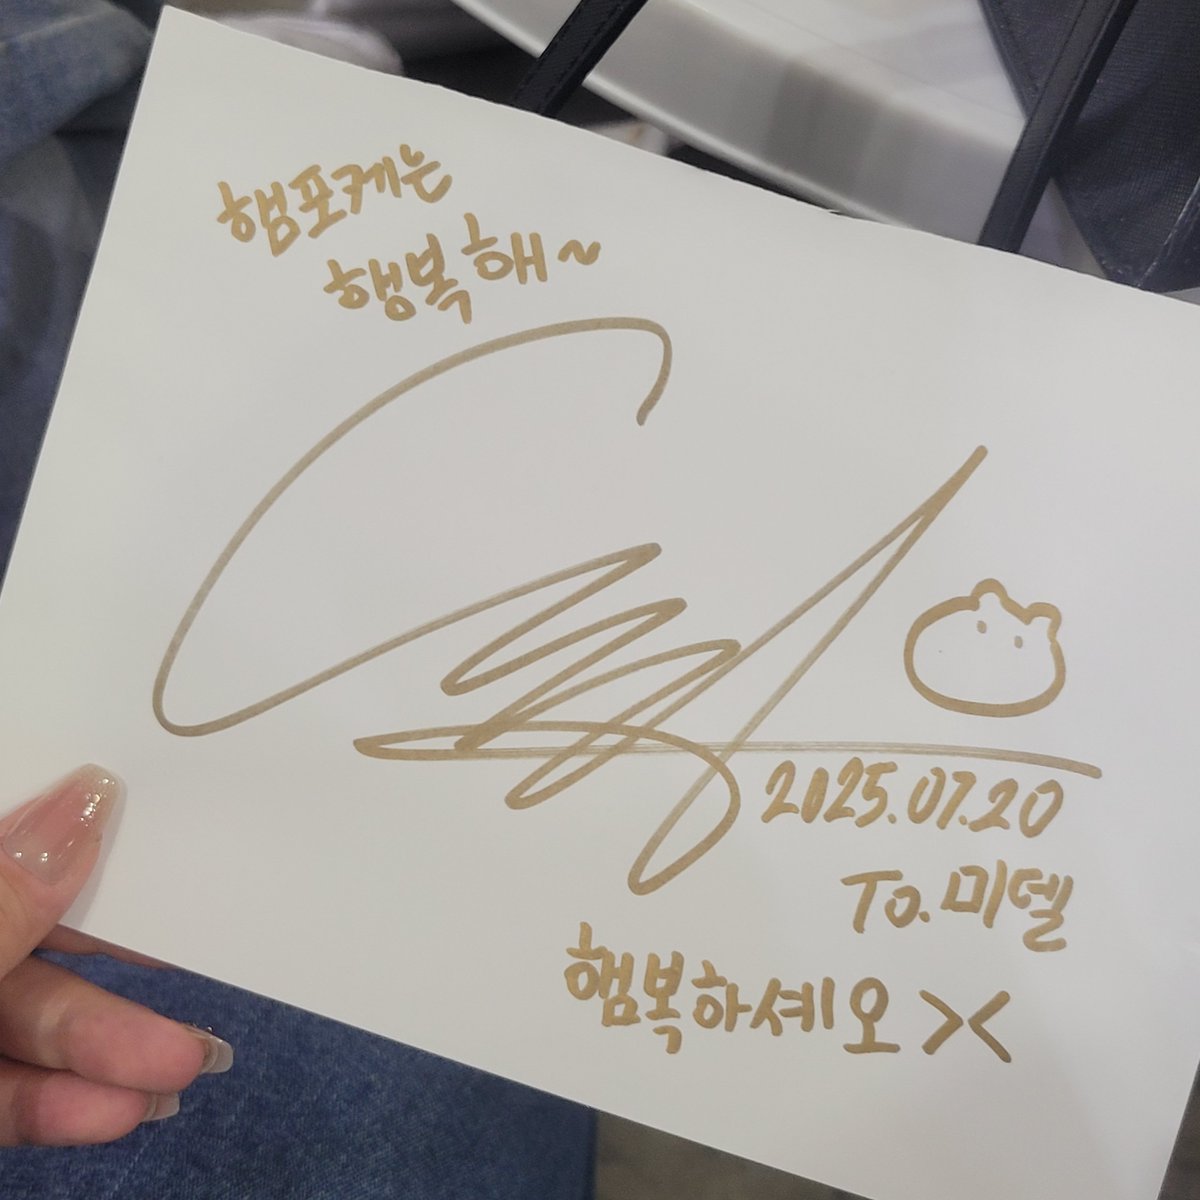 햄포케는
행복해~
2025.07.20
To. 미델
햄복하셰오 ><